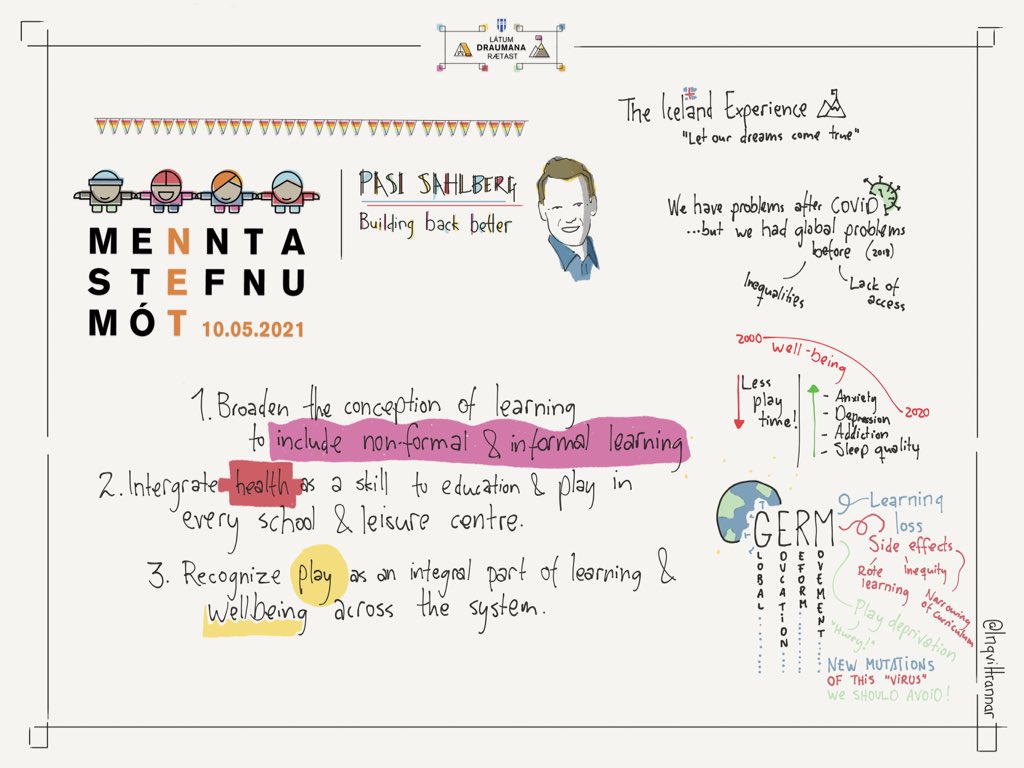 LÁTUM
DRAUMANA
RÆTAST
MENNTA
STEFNU
MÓT 10.05.2021
PASI SAHLBERG
Building back better
The Iceland Experience
"Let our dreams come true"
We have problems after COVID
...but we had global problems
before (2018)
Inequalities
Lack of
access
2000 well-being
2020
Less
play
time!
- Anxiety
- Depression
- Addiction
- Sleep quality
1. Broaden the conception of learning
to include non-formal & informal learning
2. Intergrate health as a skill to education & play in
every school & leisure centre.
3. Recognize play as an integral part of learning &
wellbeing across the system.
GERM
GLOBAL
EDUCATION
REFORM
MOVEMENT
Learning
loss
Side effects
Rote
learning
Inequity
Narrowing
of curriculum
Play deprivation
"Hurry!"
NEW MUTATIONS
OF THIS "VIRUS"
WE SHOULD AVOID!
@IngviHrannar